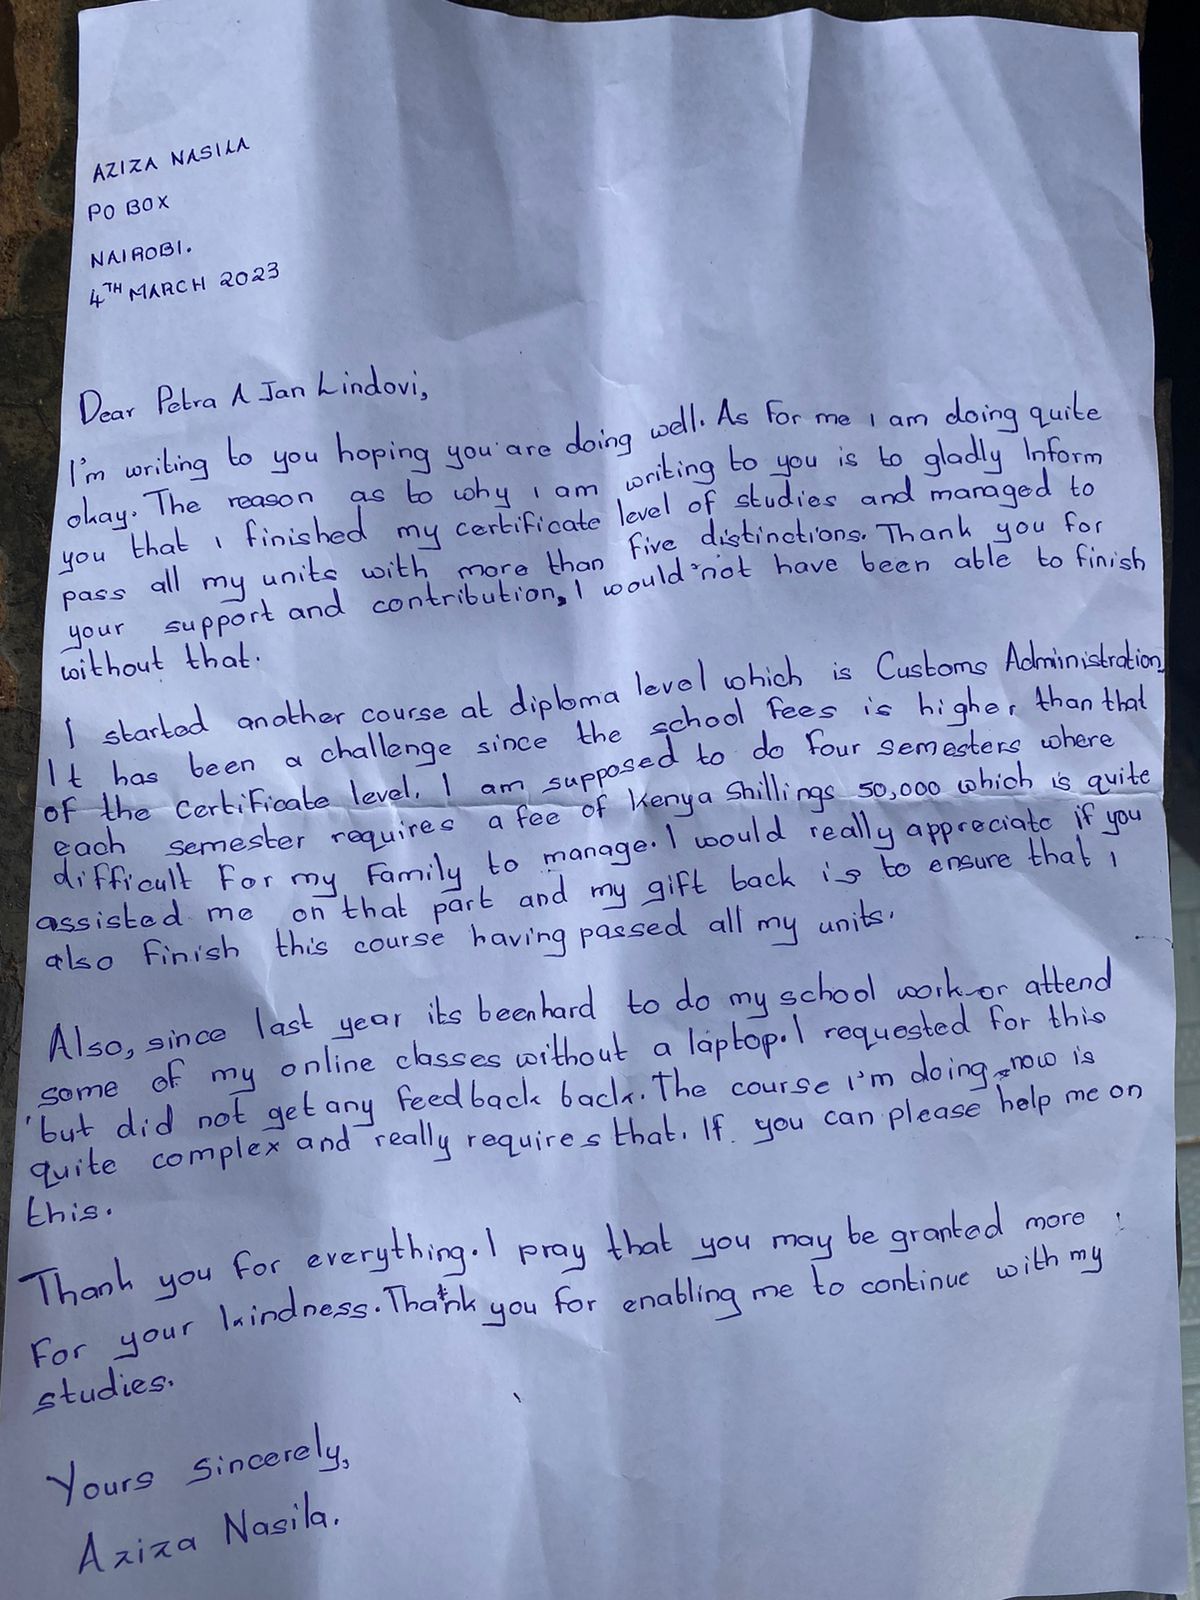 AZIZA NASILA
PO BOX
NAIROBI.
4TH MARCH 2023
Dear Petra A Jan Lindovi,
I'm writing to you hoping you are doing well. As for me I am doing quite
okay. The reason as to why I am writing to you is to gladly Inform
you that I finished my certificate level of studies and managed to
pass all my units with more than five distinctions. Thank you for
your support and contribution, I would not have been able to finish
without that.
I started another course at diploma level which is Customs Administration.
It has been a challenge since the school fees is higher than that
of the certificate level. I am supposed to do four semesters where
each semester requires a fee of Kenya Shillings 50,000 which is quite
difficult for my Family to manage. I would really appreciate if you
assisted me on that part and my gift back is to ensure that I
also finish this course having passed all my units.
Also, since last year its been hard to do my school work or attend
some of my online classes without a laptop. I requested for this
but did not get any feedback back. The course I'm doing now is
quite complex and really requires that. If you can please help me on
this.
Thank you for everything. I pray that you may be granted more
for your kindness. Thank you for enabling me to continue with my
studies.
Yours sincerely,
Aziza Nasila.